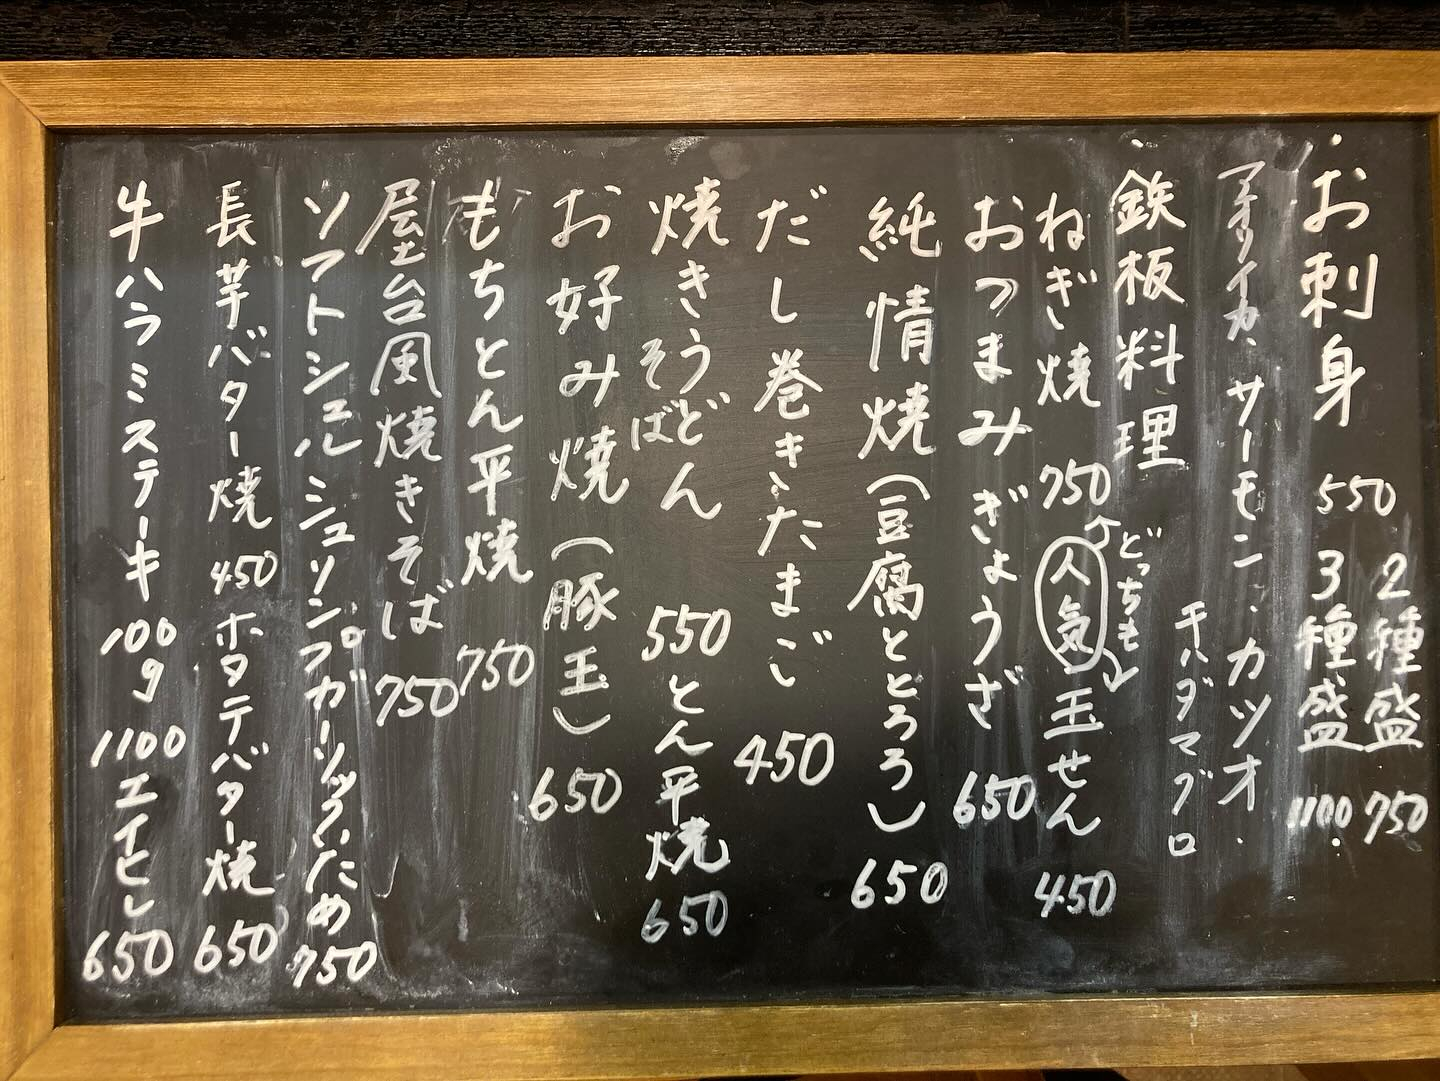 お刺身 550 2種盛 750
3種盛 1100
アオリイカ、サーモン・カツオ・
キハダマグロ
鉄板料理
ねぎ焼 750 人気 玉せん 450
どっちも
おつまみぎょうざ 650
純情焼(豆腐ととろろ) 650
だし巻きたまご 450
焼きうどん 550 とん平焼 650
そば
お好み焼(豚玉) 650
もちとん平焼 750
屋台風焼きそば 750
ソフトシェルシュリンプガーリックいため 750
長芋バター焼 450 ホタテバター焼 650
牛ハラミステーキ 100g 1100 エイヒレ 650